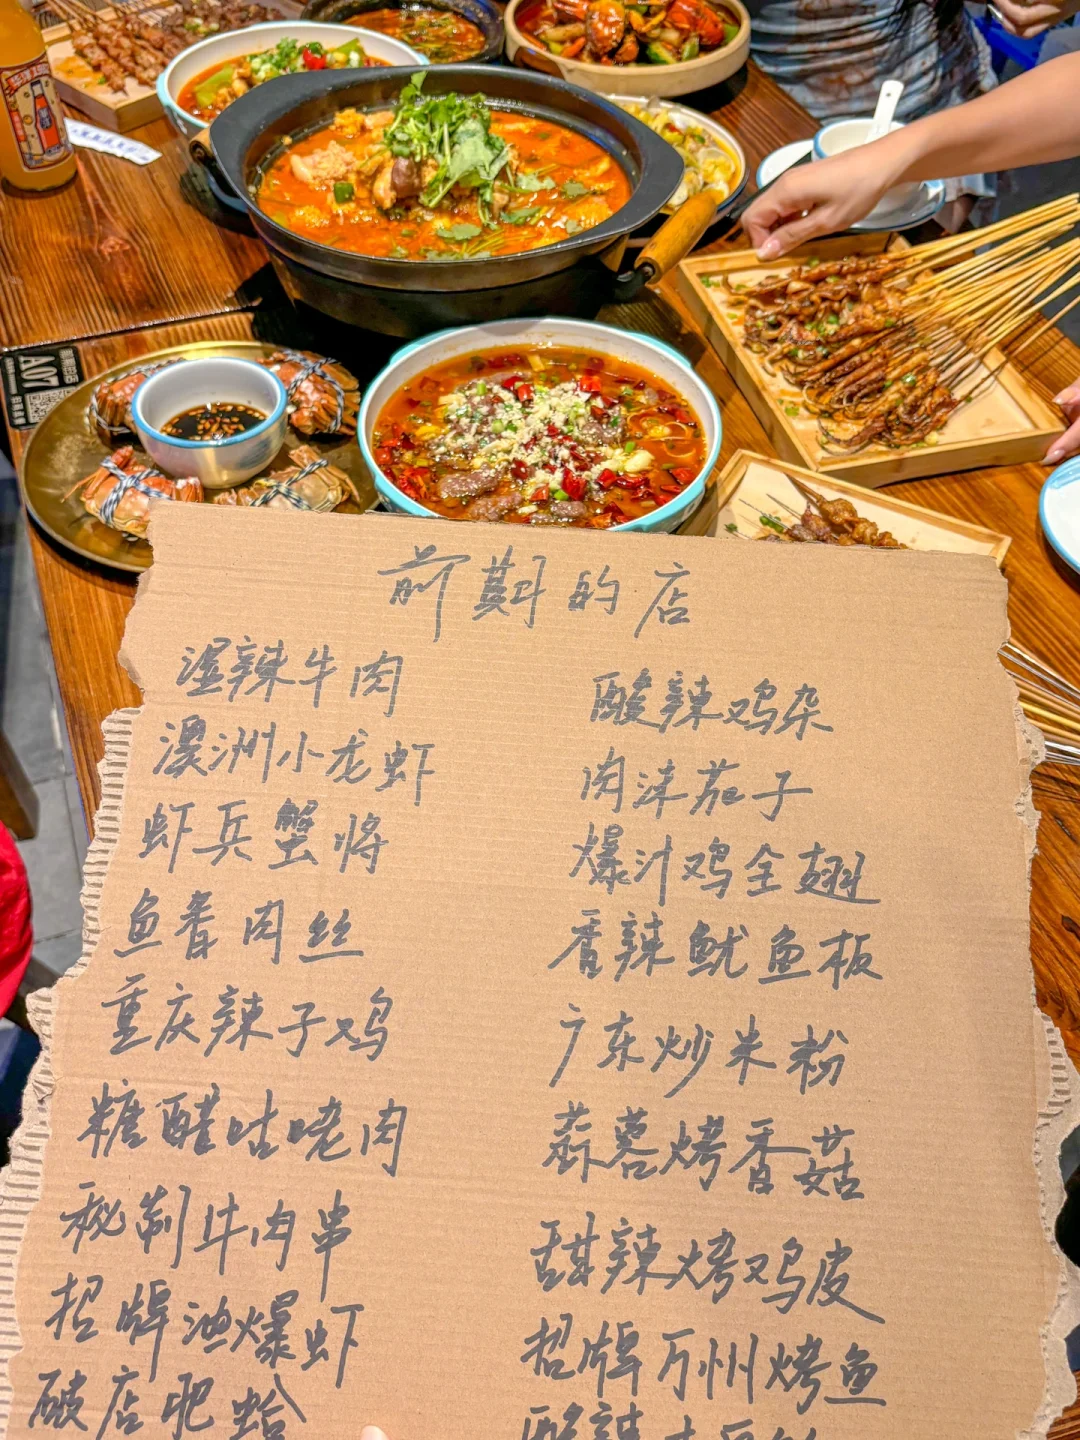 前斟的店
湿辣牛肉
澳洲小龙虾
虾兵蟹将
鱼香肉丝
重庆辣子鸡
糖醋咕咾肉
秘制牛肉串
招牌油爆虾
破店肥蛤
酸辣鸡杂
肉沫茄子
爆汁鸡全翅
香辣鱿鱼板
广东炒米粉
蒜蓉烤香菇
甜辣烤鸡皮
招牌万州烤鱼
酸辣土豆丝
A07